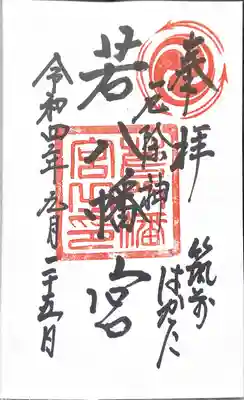 奉拝
筑前
はかた
厄除神
若八幡宮
令和四年九月二十五日